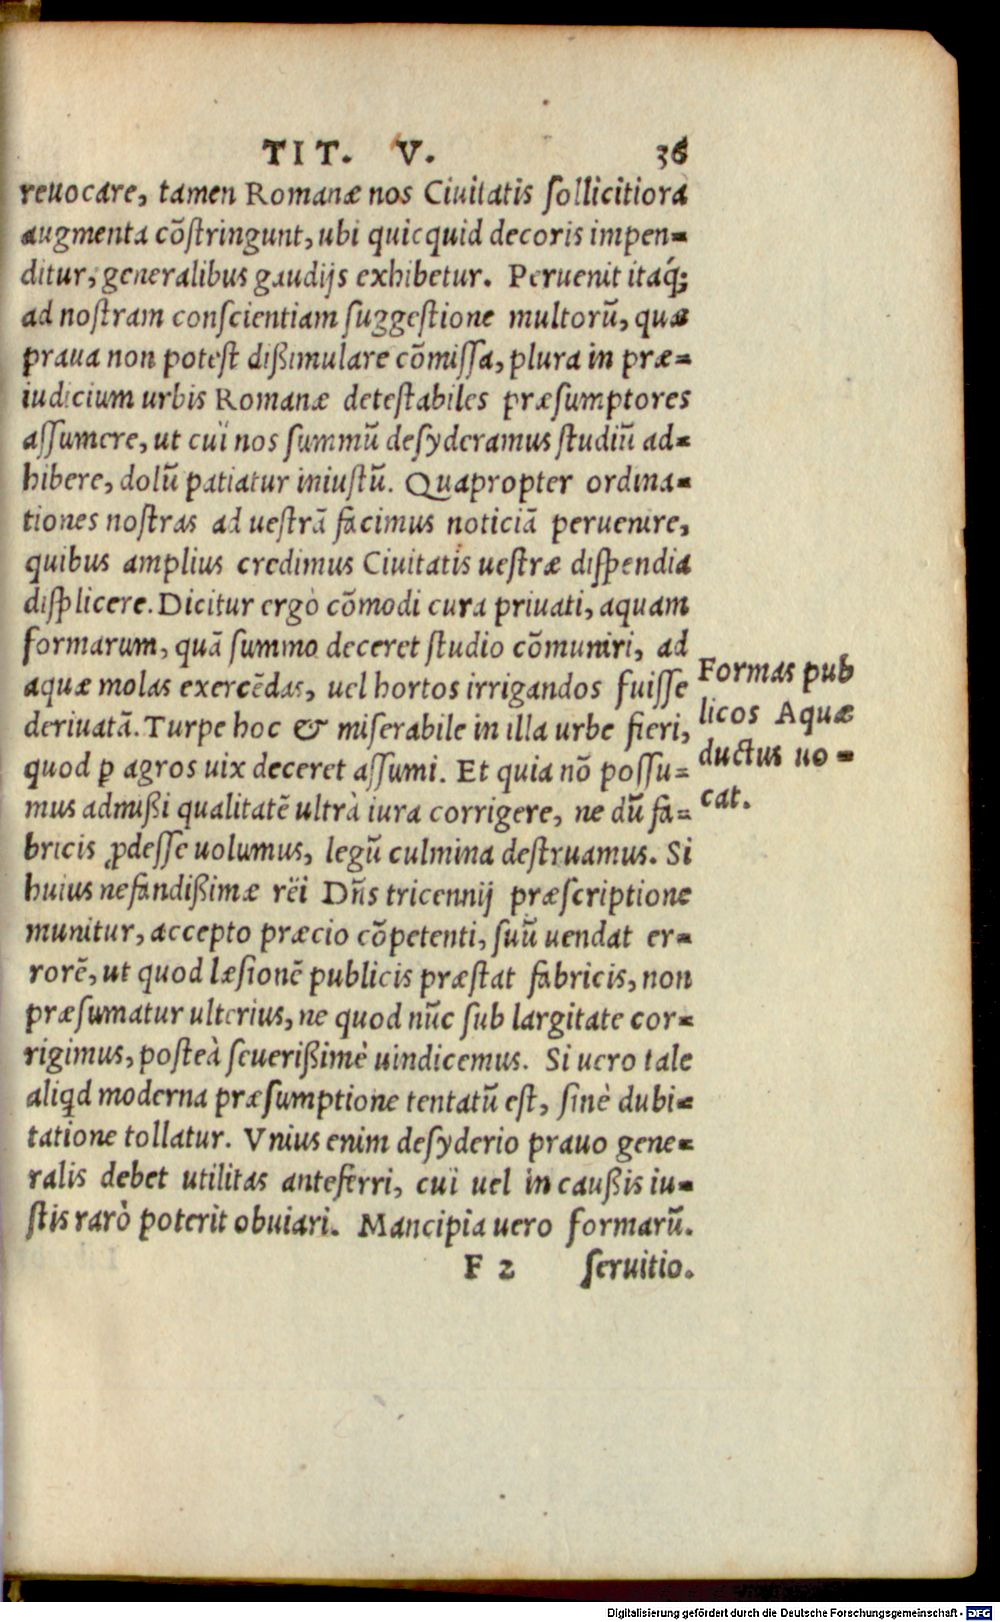 TIT. V. 36
reuocare, tamen Romanæ nos Ciuitatis sollicitiora
augmenta cõstringunt, ubi quicquid decoris impen=
ditur, generalibus gaudijs exhibetur. Peruenit itaq́;
ad nostram conscientiam suggestione multorũ, quæ
praua non potest dißimulare cõmissa, plura in præ=
iudicium urbis Romanæ detestabiles præsumptores
assumere, ut cuï nos summũ desyderamus studiũ ad=
hibere, dolũ patiatur iniustũ. Quapropter ordina=
tiones nostras ad uestrã facimus noticiã peruenire,
quibus amplius credimus Ciuitatis uestræ dispendia
displicere. Dicitur ergò cõmodi cura priuati, aquam
formarum, quã summo deceret studio cõmuniri, ad
aquæ molas exercẽdas, uel hortos irrigandos fuisse
deriuatã. Turpe hoc & miserabile in illa urbe fieri,
quod ꝑ agros uix deceret assumi. Et quia nõ possu=
mus admißi qualitatẽ ultrà iura corrigere, ne dũ fa=
bricis ꝓdesse uolumus, legũ culmina destruamus. Si
huius nefandißimæ rëi Dñs tricennij præscriptione
munitur, accepto præcio cõpetenti, suũ uendat er=
rorẽ, ut quod læsionẽ publicis præstat fabricis, non
præsumatur ulterius, ne quod nũc sub largitate cor=
rigimus, posteà seuerißimè uindicemus. Si uero tale
aliqd moderna præsumptione tentatũ est, sinè dubi=
tatione tollatur. Vnius enim desyderio prauo gene=
ralis debet utilitas anteferri, cuï uel in caußis iu=
stis rarò poterit obuiari. Mancipia uero formarũ.
F 2 seruitio.
Formas pub
licos Aquæ
ductus uo =
cat.
Digitalisierung gefördert durch die Deutsche Forschungsgemeinschaft - DFG